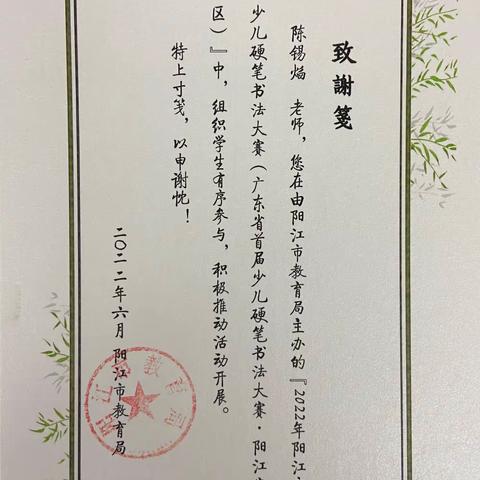 致謝箋
陈锡焰 老师，您在由阳江市教育局主办的『2022年阳江
少儿硬笔书法大赛（广东省首届少儿硬笔书法大赛·阳江
区）』中，组织学生有序参与，积极推动活动开展。
特上寸笺，以申谢忱！
二〇二二年六月 阳江市教育局
阳江市教育局